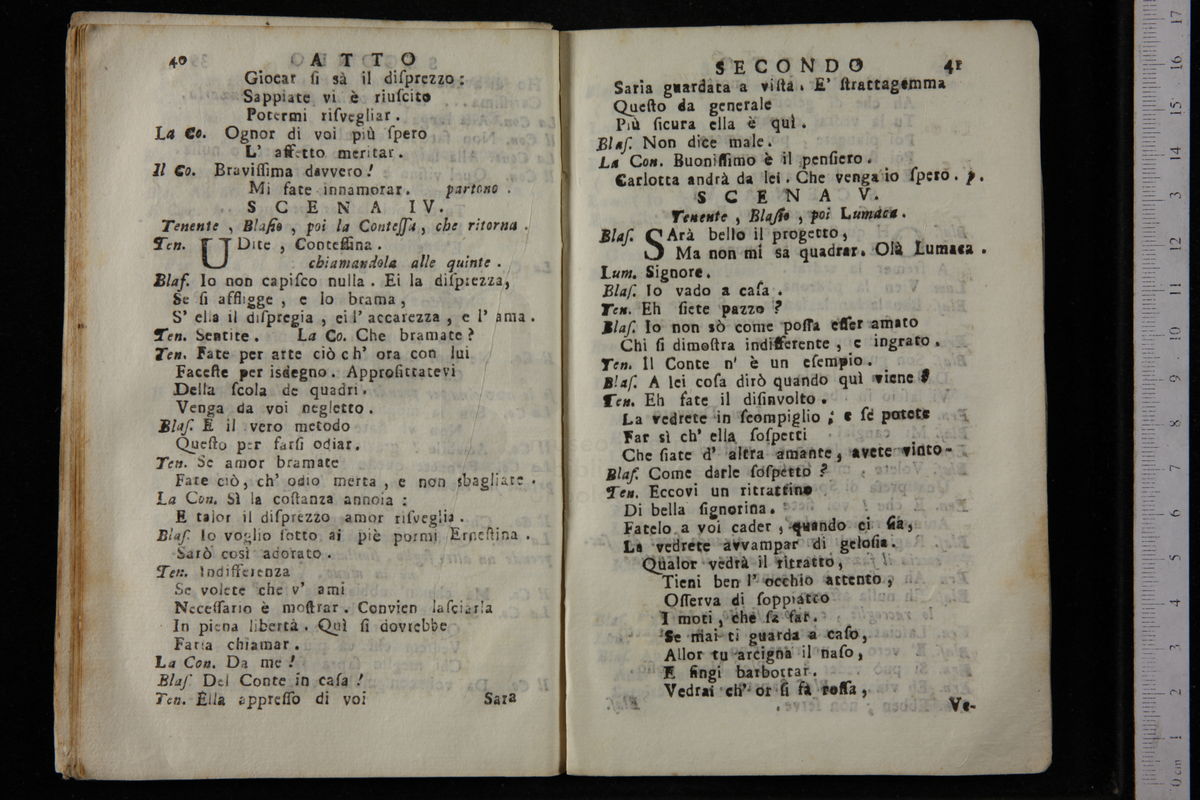 40 ATTO
Giocar ſi sà il diſprezzo:
Sappiate vi è riuſcito
Potermi riſvegliar.
La Co. Ognor di voi più ſpero
L' affetto meritar.
Il Co. Braviſſima davvero!
Mi fate innamorar. partono.
SCENA IV.
Tenente, Blaſio, poi la Conteſſa, che ritorna.
Ten. UDite, Conteſſina.
chiamandola alle quinte.
Blaſ. Io non capiſco nulla. Ei la diſprezza,
Se ſi affligge, e lo brama,
S' ella il diſpregia, ei l' accarezza, e l' ama.
Ten. Sentite. La Co. Che bramate?
Ten. Fate per arte ciò ch' ora con lui
Faceſte per isdegno. Approfittatevi
Della ſcola de quadri.
Venga da voi negletto.
Blaſ. E il vero metodo
Queſto per farſi odiar.
Ten. Se amor bramate
Fate ciò, ch' odio merta, e non sbagliate.
La Con. Sì la coſtanza annoia:
E talor il diſprezzo amor riſveglia.
Blaſ. Io voglio ſotto ai piè pormi Erneſtina.
Sarò così adorato.
Ten. Indifferenza
Se volete che v' ami
Neceſſario è moſtrar. Convien laſciarla
In piena libertà. Quì ſi dovrebbe
Farla chiamar.
La Con. Da me!
Blaſ. Del Conte in caſa!
Ten. Ella appreſſo di voi
Sara
SECONDO 41
Saria guardata a viſta. E' ſtrattagemma
Queſto da generale
Più ſicura ella è quì.
Blaſ. Non dice male.
La Con. Buoniſſimo è il penſiero.
Carlotta andrà da lei. Che venga io ſpero. p.
SCENA V.
Tenente, Blaſio, poi Lumaca.
Blaſ. SArà bello il progetto,
Ma non mi sa quadrar. Olà Lumaca.
Lum. Signore.
Blaſ. Io vado a caſa.
Ten. Eh ſiete pazzo?
Blaſ. Io non sò come poſſa eſſer amato
Chi ſi dimoſtra indifferente, e ingrato.
Ten. Il Conte n' è un eſempio.
Blaſ. A lei coſa dirò quando quì viene?
Ten. Eh fate il diſinvolto.
La vedrete in ſcompiglio; e ſe potete
Far sì ch' ella ſoſpetti
Che ſiate d' altra amante, avete vinto-
Blaſ. Come darle ſoſpetto?
Ten. Eccovi un ritrattino
Di bella ſignorina.
Fatelo a voi cader, quando ci ſia,
La vedrete avvampar di geloſia.
Qualor vedrà il ritratto,
Tieni ben l' occhio attento,
Oſſerva di ſoppiatto
I moti, che ſa far.
Se mai ti guarda a caſo,
Allor tu arcigna il naſo,
E fingi barbottar.
Vedrai ch' or ſi fa roſſa,
Ve-